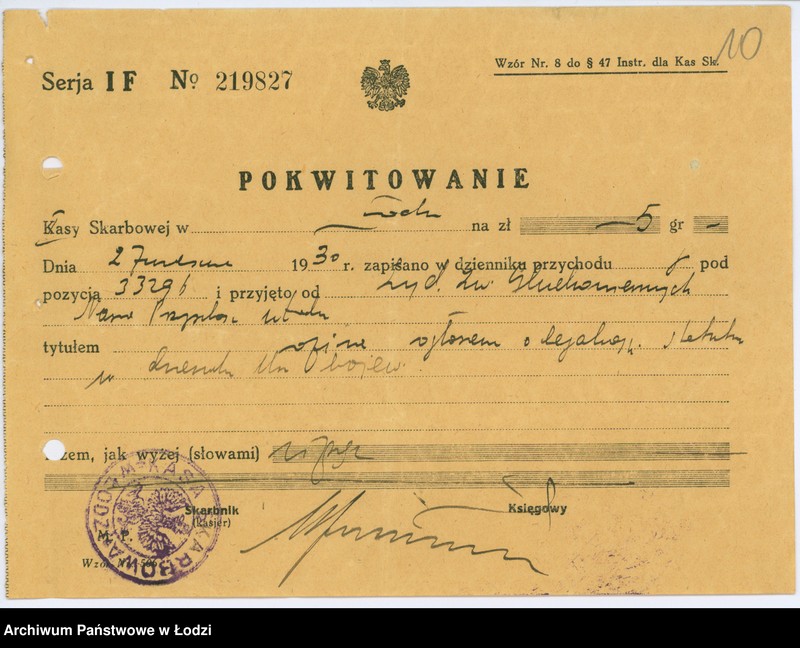 10
Serja IF № 219827
Wzór Nr. 8 do § 47 Instr. dla Kas Sk.
POKWITOWANIE
Kasy Skarbowej w Łodzi na zł 5 gr —
Dnia 27 1930 r. zapisano w dzienniku przychodu pod
pozycją 33296 i przyjęto od Żyd. Zw. Głuchoniemych
w Łodzi
tytułem ogłoszen o legalizacji statutu
w Dzienniku Urz. Wojew.
Razem, jak wyżej (słowami) zł pięć
Skarbnik
(Kasjer)
Księgowy
M. P.
KASA SKARBOWA
Archiwum Państwowe w Łodzi